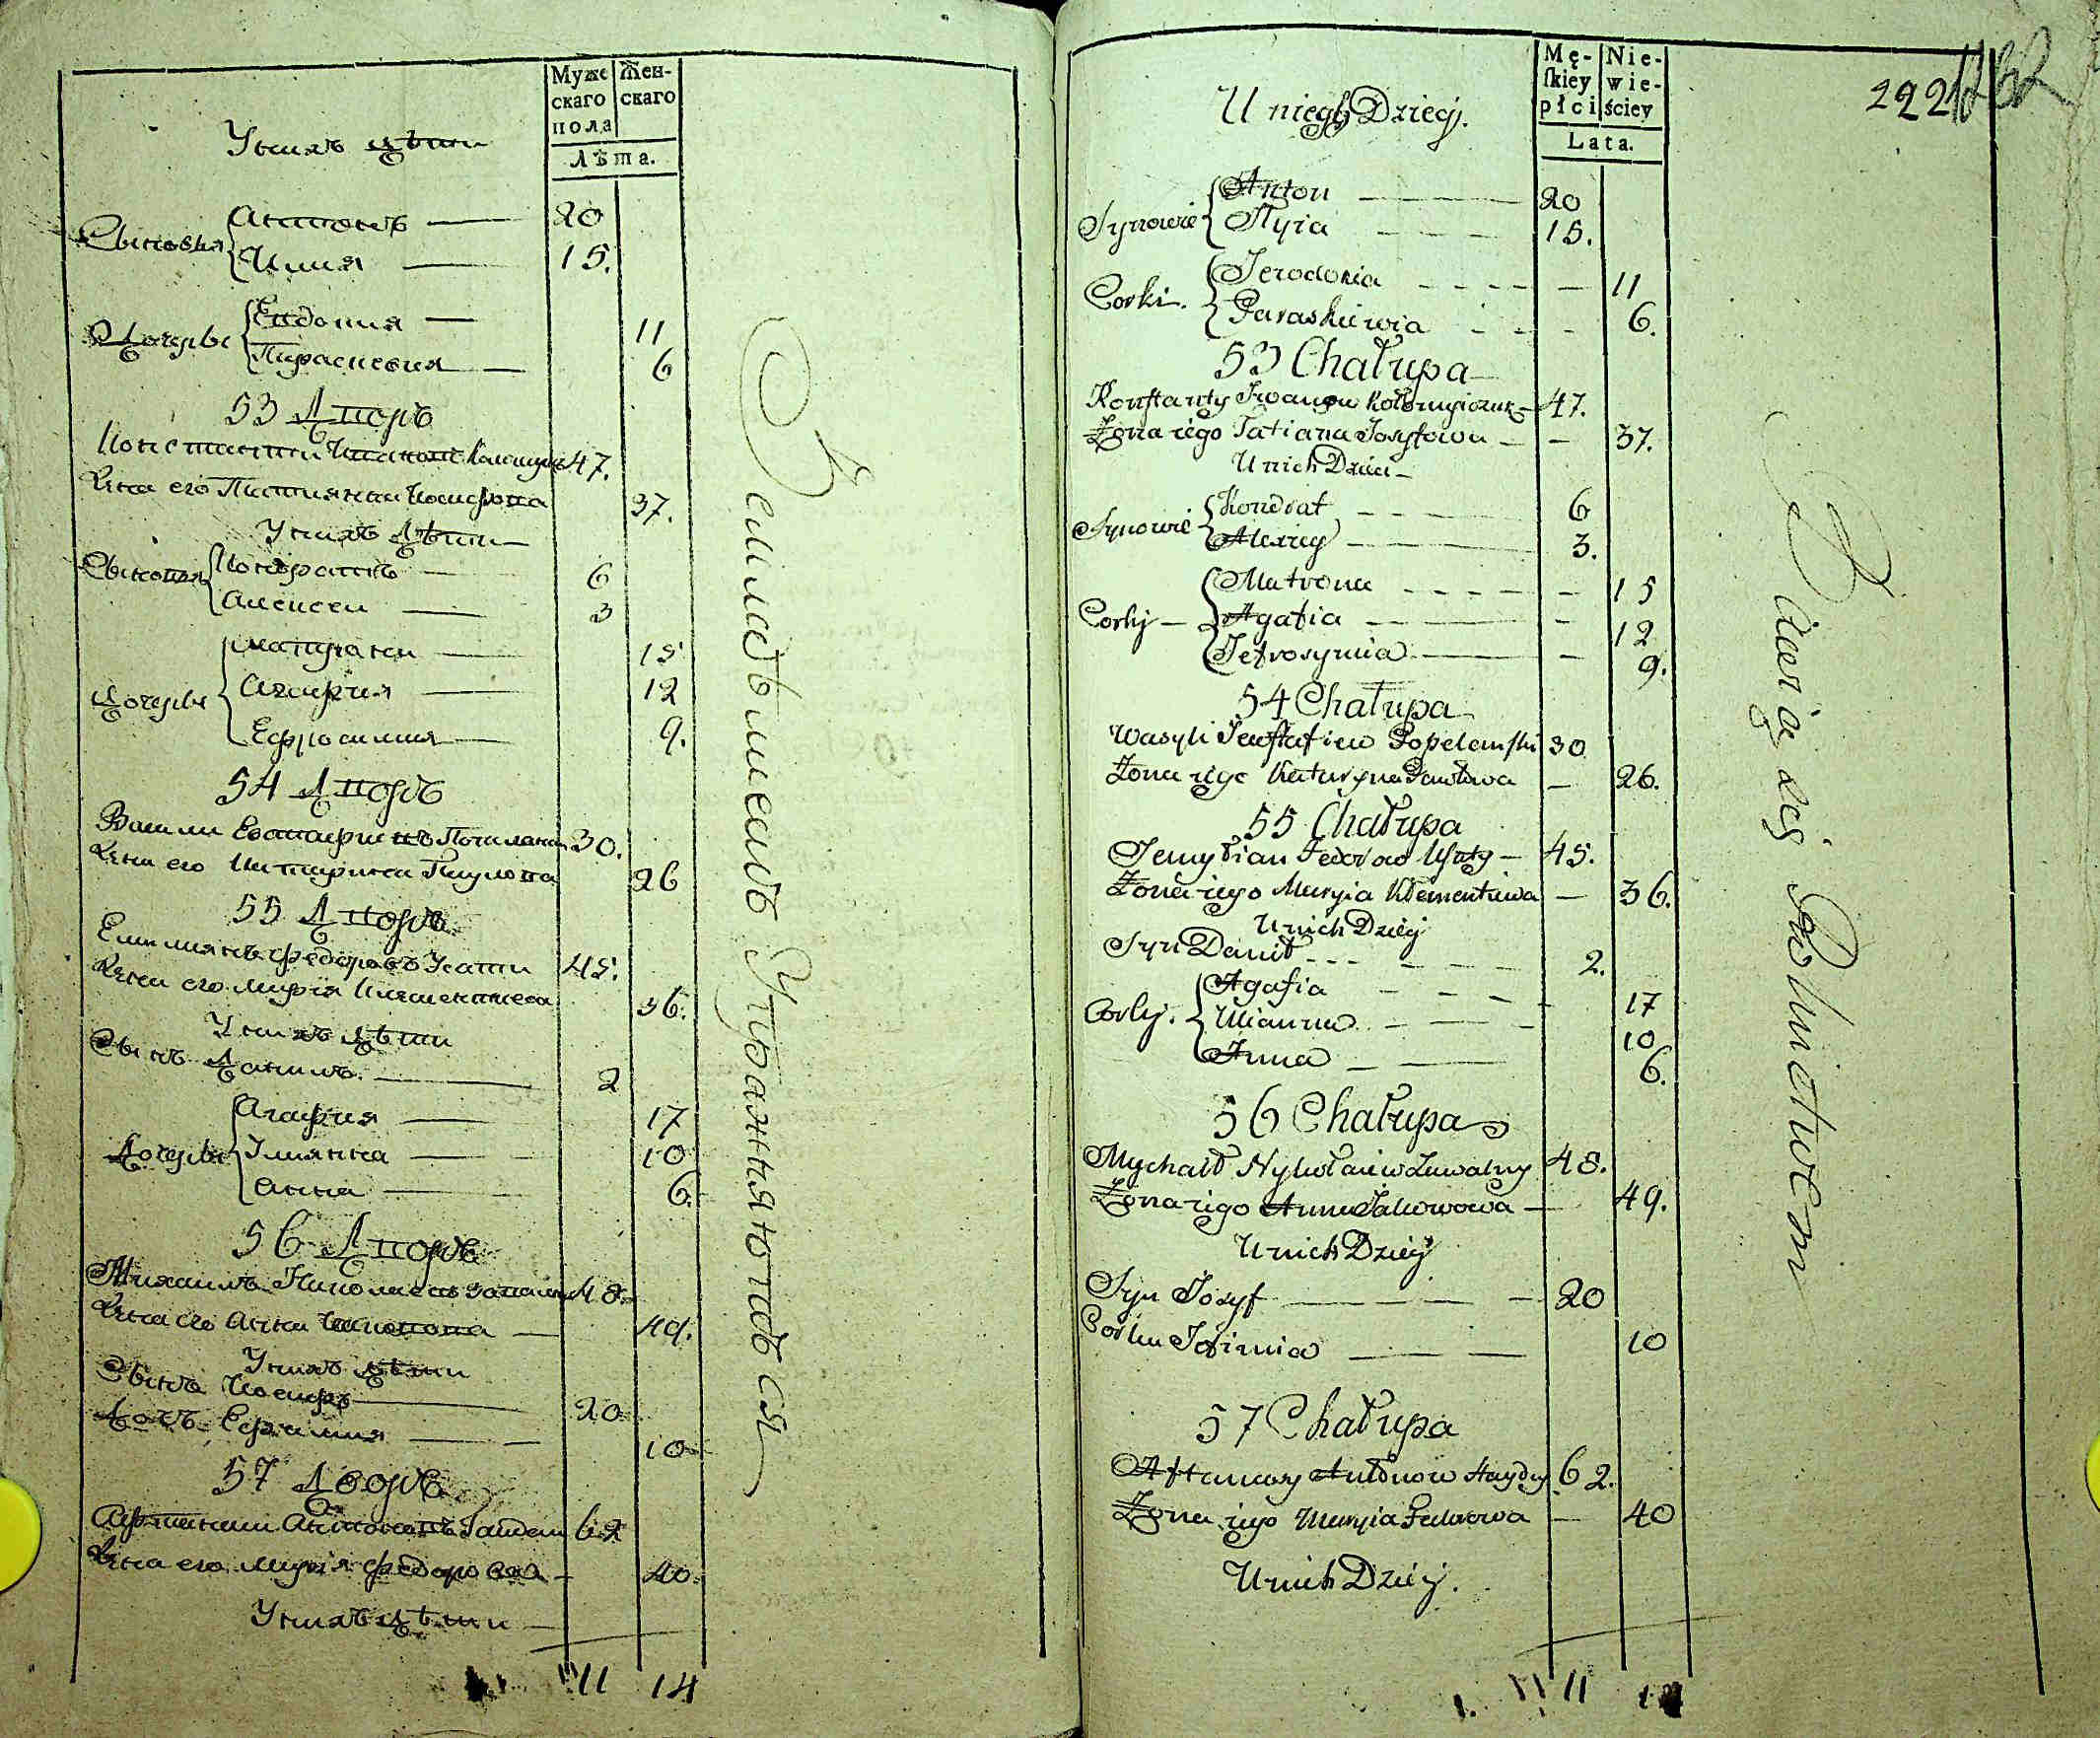 Муже скаго пола
Жен- скаго
Лѣта.
У нихъ дѣти
Сыновья
Антонъ — 20
Илия — 15.
Дочери
Евдокия — 11
Параскевия — 6
53 Дворъ
Константи Ивановъ 47.
Жена его Татияна Иосифова 37.
У нихъ Дѣти
Сыновья
Кондратъ — 6
Алексеи — 3
Дочери
Матрона — 15
Агафия — 12
Ефросиния — 9.
54 Дворъ
Васили Евстафиевъ 30.
Жена его Катарина Паулова 26
55 Дворъ
Емилиянъ Федоровъ Усати 45.
Жена его Мария Климентиева 36.
У нихъ дѣти
Сынъ Данилъ. — 2
Дочери
Агафия — 17
Улиянна — 10
Анна — 6.
56 Дворъ
Михаилъ Николаевъ 48.
Жена его Анна — 49.
У нихъ дѣти
Сынъ Иосифъ — 20
Дочь Ефимия — 10
57 Дворъ
Афтанаси Антоновъ Гайдей 62
Жена его Мария Федорова — 40
У нихъ дѣти
11 14
Землѣдѣлиемъ Упражняютъ ся
222
Mę- ſkiey płci
Nie- wie- ściey
Lata.
U niegh Dzieej.
Synowie
Anton — 20
Ilyia — 15.
Corki.
Jewdokia — 11
Paraskiewia — 6.
53 Chałupa
Konſtanty Iwanow Kołomyiczuk — 47.
Zona iego Tatiana Josyfowa — 37.
U nich Dzieci
Synowie
Kondrat — 6
Alexiey — 3.
Corky —
Matrona — 15
Agafia — 12
Jefrosynia — 9.
54 Chałupa
Wasyli Jewſtafiew Popelanſki 30
Zona iego Kataryna Pawłowa — 26.
55 Chałupa
Jemylian Fedorow Usaty — 45.
Zona iego Maryia Klementiewa — 36.
U nich Dziey
Syn Danił — 2.
Corky.
Agafia — 17
Ulianna — 10
Anna — 6.
56 Chałupa
Mychałł Nykołaiew 48.
Zona iego Anna Jakowowa — 49.
U nich Dziey
Syn Josyf — 20
Corka Jefimia — 10
57 Chałupa
Aftanasy Antonow Haydey 62.
Zona iego Maryia Fedorowa — 40
U nich Dziey.
11